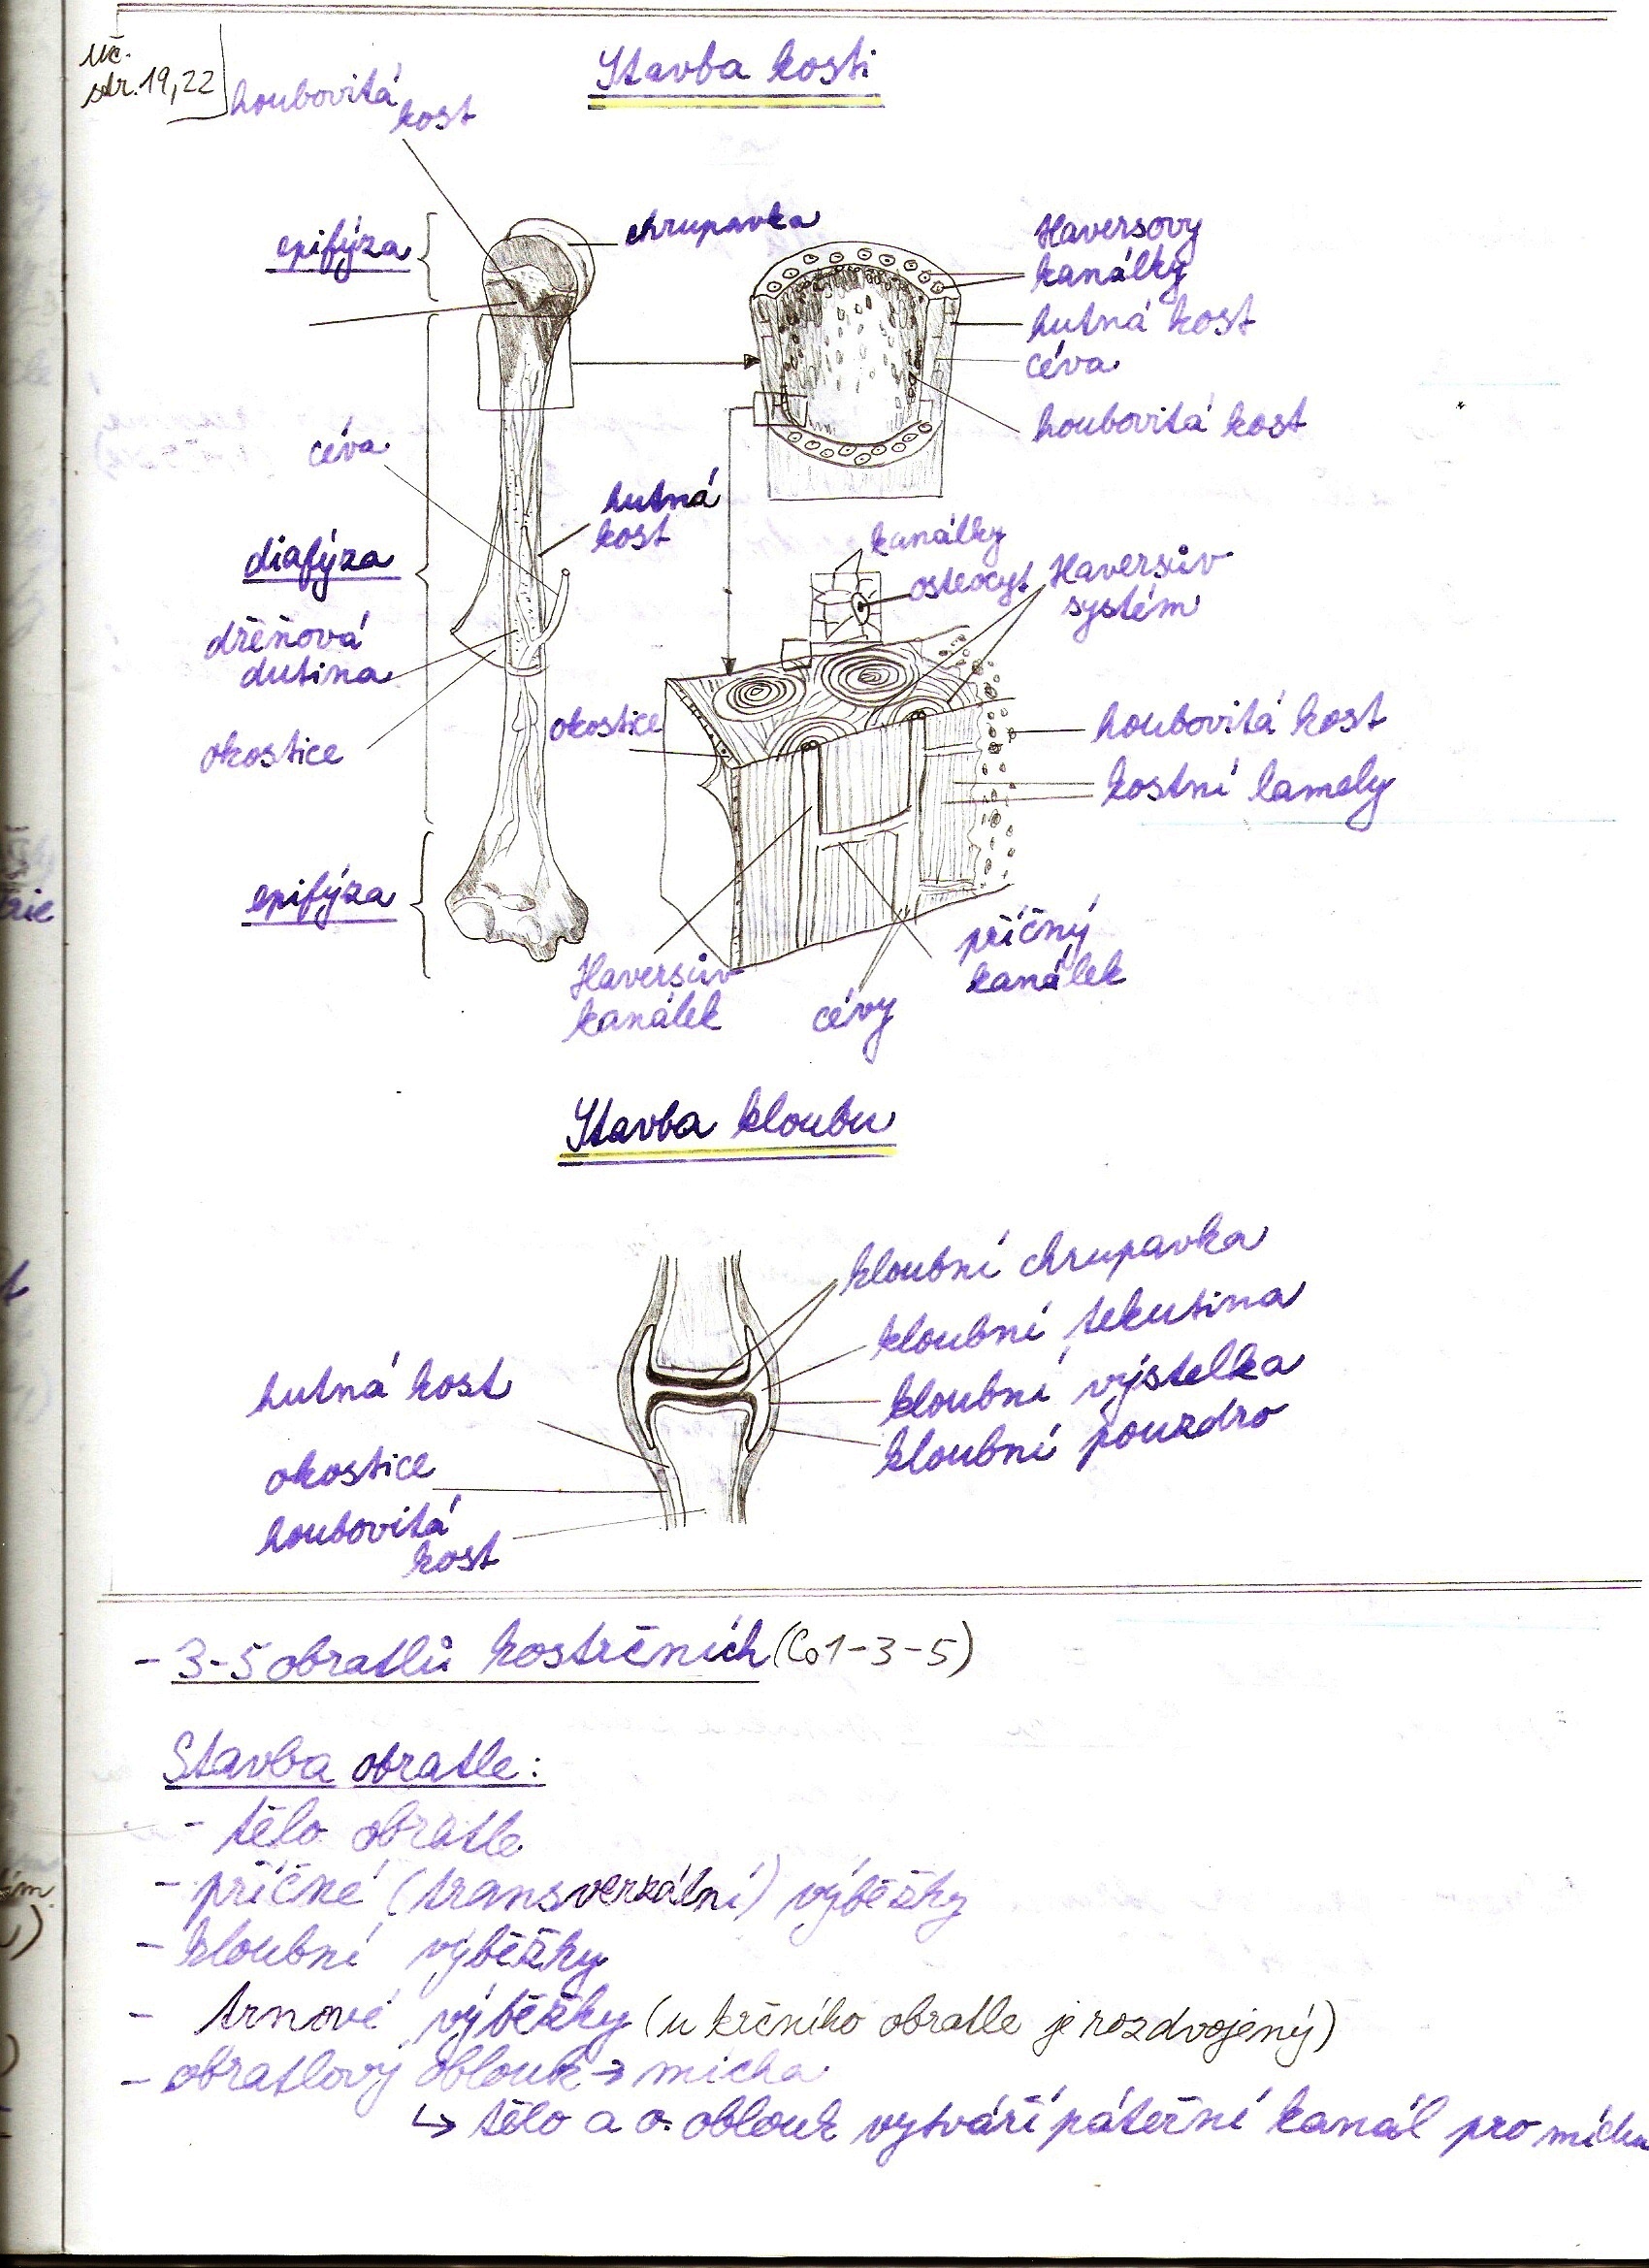 Uč.
str. 19,22
Stavba kosti
houbovitá
kost
epifýza
chrupavka
Haversovy
kanálky
hutná kost
céva
houbovitá kost
céva
hutná
kost
diafýza
dřeňová
dutina
okostice
epifýza
kanálky
osteocyt
Haversův
systém
okostice
houbovitá kost
kostní lamely
Haversův
kanálek
cévy
příčný
kanálek
Stavba kloubu
kloubní chrupavka
kloubní tekutina
kloubní výstelka
kloubní pouzdro
hutná kost
okostice
houbovitá
kost
- 3-5 obratlů kostrčních (Co1-3-5)
Stavba obratle:
- tělo obratle
- příčné (transverzální) výběžky
- kloubní výběžky
- trnové výběžky (u krčního obratle je rozdvojený)
- obratlový oblouk → mícha
↳ tělo a o. oblouk vytváří páteřní kanál pro míchu